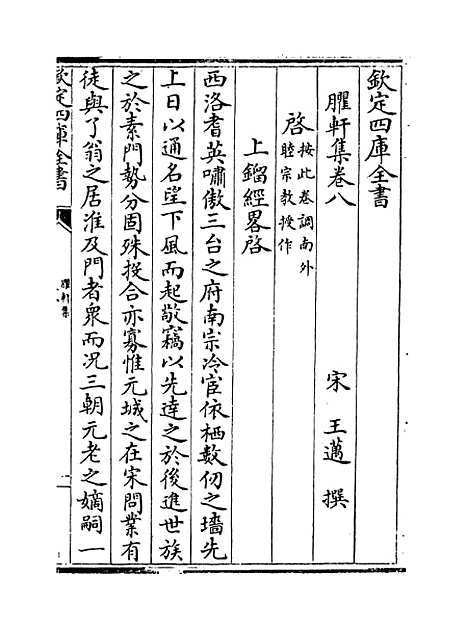 欽定四庫全書
臞軒集卷八
宋 王邁 撰
啓按此卷調南外睦宗教授作
上鎦經畧啓
西洛耆英嘯傲三台之府南宗冷官依栖數仞之墻先
上日以通名望下風而起敬竊以先達之於後進世族
之於素門勢分固殊投合亦寡惟元城之在宋問業有
徒與了翁之居淮及門者衆而況三朝元老之嫡嗣一
欽定四庫全書
臞軒集